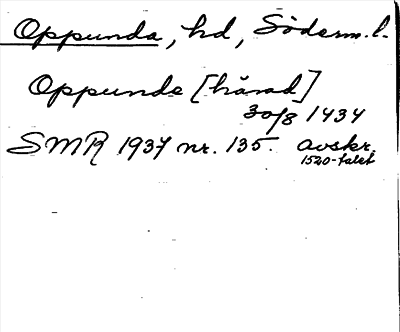 Oppunda, hd, Söderm. l.
Oppunde [härad]
30/8 1434
SMR 1937 nr. 135. avskr.
1520-talet